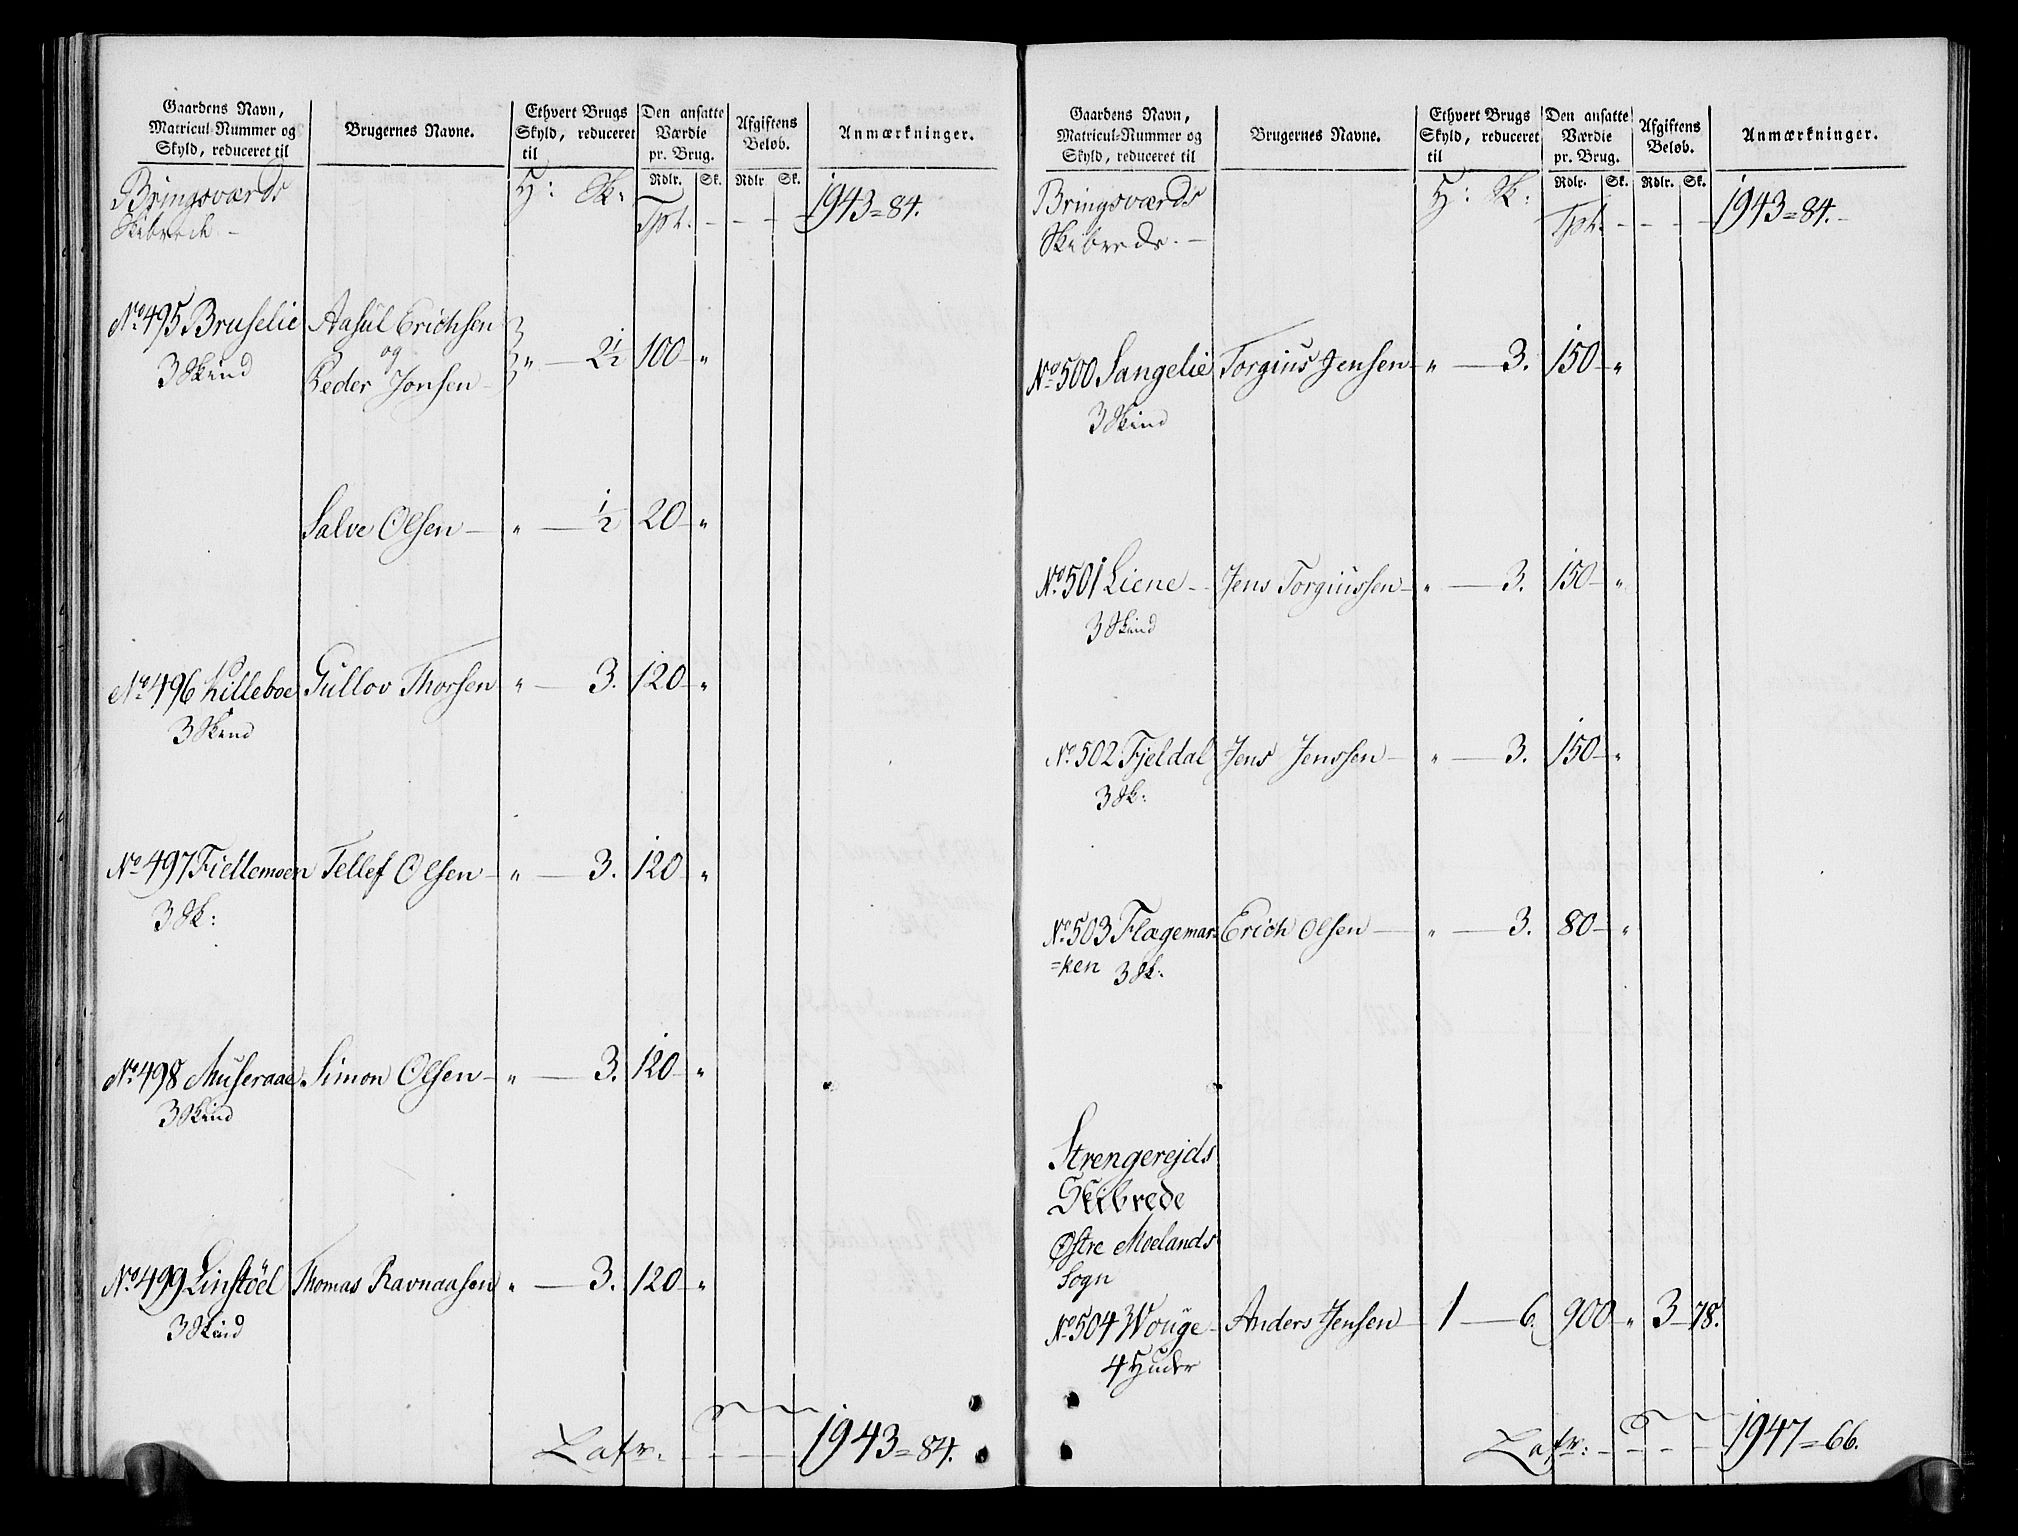 Gaardens Navn, Matricul-Nummer og Skyld, reduceret til
Brugernes Navne.
Ethvert Brugs Skyld, reduceret til
Den ansatte Værdie pr. Brug.
Afgiftens Beløb.
Anmærkninger.
Rdlr. Sk. Rdlr Sk.
Bringsværds H: Sk: Tpt. - - - 1943=84.
Skibrede -
No 495 Bruselie Aasul Erichsen
og " — 2½ 100 "
3 Skind Peder Jonsen
Salve Olsen — " — ½ 20 "
No 496 Killeboe Gullov Thorsen " — 3. 120 "
3 Skind
No 497 Fiellemoen Tellef Olsen — " — 3. 120 "
3 Sk:
No 498 Museraae Simon Olsen — " — 3. 120 "
3 Skind
No 499 Linstöel Thomas Ravnaasen " — 3. 120 "
3 Skind
Lafr. - - - 1943=84.
Gaardens Navn, Matricul-Nummer og Skyld, reduceret til
Brugernes Navne.
Ethvert Brugs Skyld, reduceret til
Den ansatte Værdie pr. Brug.
Afgiftens Beløb.
Anmærkninger.
Rdlr. Sk. Rdlr. Sk.
Bringsværds H: Sk: Tpt. - - - 1943=84.
Skibrede. —
No 500 Sangelie Torgius Jensen " — 3. 150 "
3 Skind
No 501 Liene - Jens Torgiussen " — 3. 150 "
3 Skind
No 502 Fjeldal Jens Jenssen — " — 3. 150 "
3 Sk:
No 503 Flægemar= Erich Olsen — " — 3. 80 "
=ken 3 Sk.
Strengerejds
Skibrede
Østre Moelands
Sogn
No 504 Wouge Anders Jensen 1 — 6. 900 " 3 78.
4 Huder
Lafr: - - - 1947=66.